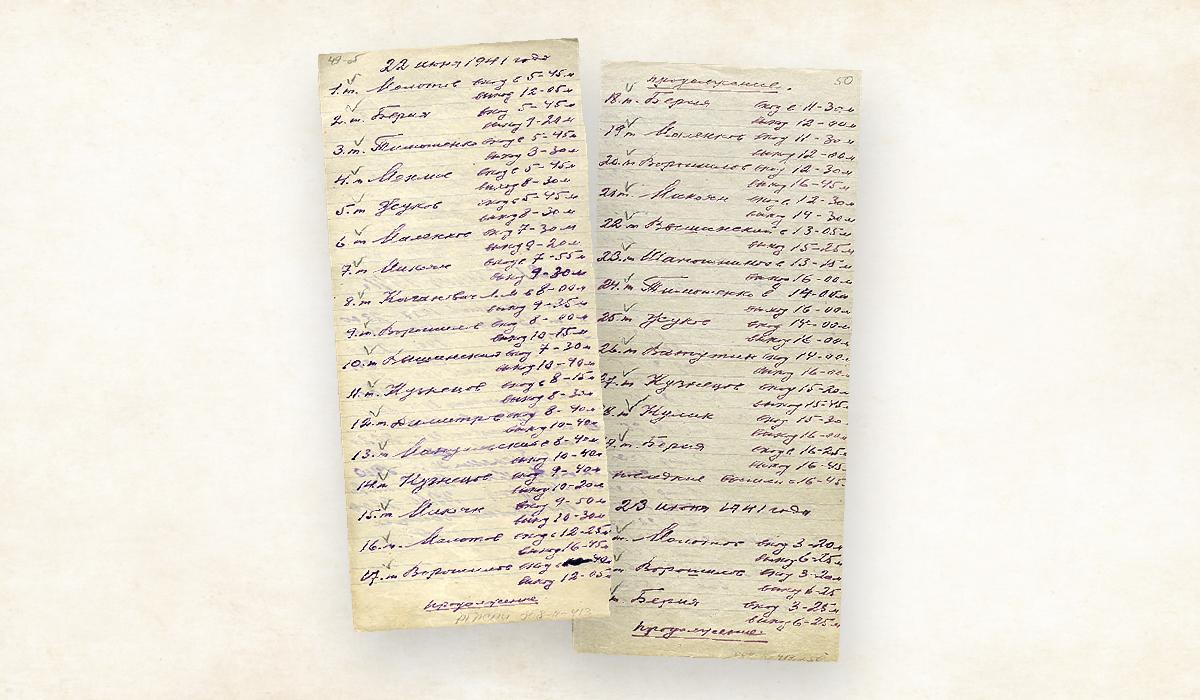 49-об
22 июня 1941 года
1. т. Молотов вход в 5-45 м
выход 12-05 м
2. т. Берия вход 5-45 м
выход 9-20 м
3. т. Тимошенко вход в 5-45 м
выход 8-30 м
4. т. Мехлис вход в 5-45 м
выход 8-30 м
5. т. Жуков вход в 5-45 м
выход 8-30 м
6 т. Маленков вход 7-30 м
выход 9-20 м
7. т. Микоян вход в 7-55 м
выход 9-30 м
8. т. Каганович Л.М в 8-00 м
выход 9-35 м
9. т. Ворошилов вход 8-00 м
выход 10-15 м
10. т. Вышинский вход 7-30 м
выход 10-40 м
11. т. Кузнецов вход в 8-15 м
выход 8-30 м
12. т. Димитров вход 8-40 м
выход 10-40 м
13. т. Мануильский в 8-40 м
выход 10-40 м
14. т Кузнецов вход 9-40 м
выход 10-20 м
15. т. Микоян вход 9-50 м
выход 10-30 м
16. т. Молотов вход в 12-25 м
выход 16-45 м
17. т Ворошилов вход
выход 12-05 м
продолжение
50
продолжение.
18. т. Берия вход в 11-30 м
выход 12-00 м
19 т Маленков вход 11-30 м
выход 12-00 м
20. т Ворошилов вход 12-30 м
выход 16-45 м
21. т. Микоян вход в 12-30 м
выход 14-30 м
22 т Вышинский в 13-05 м
выход 15-25 м
23. т Шапошников в 13-15 м
выход 16-00 м
24. т Тимошенко в 14-00 м
выход 16-00 м
25 т Жуков вход 14-00 м
выход 16-00 м
26. т Ватутин вход 14-00
выход 16-00
27. т Кузнецов вход 15-20 м
выход 15-45
8. т Кулик вход 15-30
выход 16-00
т. Берия вход в 16-25 м
выход 16-45
последние вышли в 16-45
23 июня 1941 года
т Молотов вход 3-20 м
выход 6-25 м
т Ворошилов вход 3-20 м
выход 6-25
т. Берия вход 3-25 м
выход 6-25 м
продолжение.